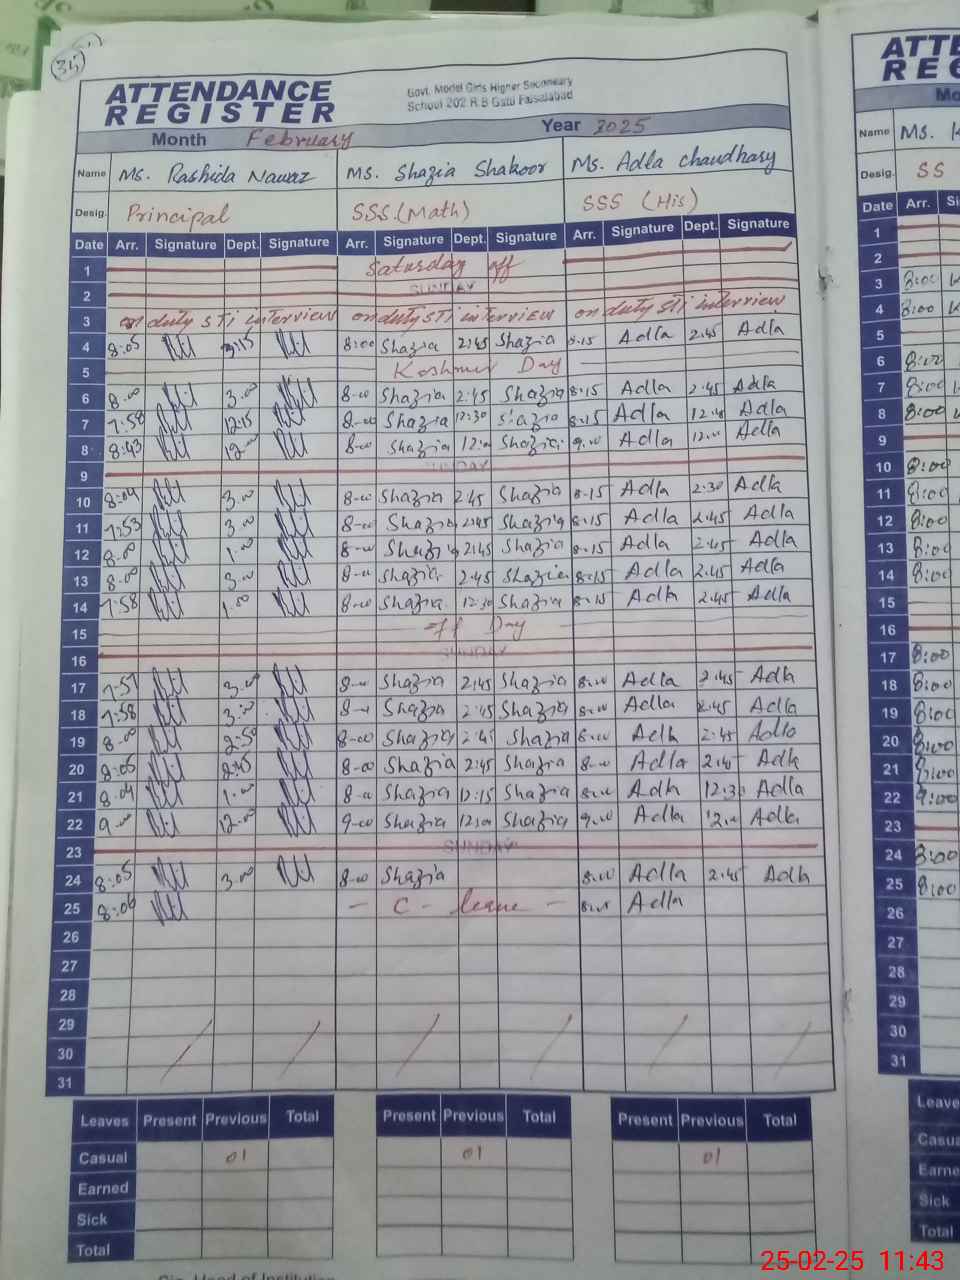 35
ATTENDANCE REGISTER
Govt. Model Girls Higher Secondary
School 202 R.B Gatti Faisalabad
Month February Year 2025
Name Ms. Rashida Nawaz Ms. Shazia Shakoor Ms. Adla Chaudhary
Desig. Principal SSS (Math) SSS (His)
Date Arr. Signature Dept. Signature Arr. Signature Dept. Signature Arr. Signature Dept. Signature
1 Saturday off
2 SUNDAY
3 on duty STI interview on duty STI interview on duty STI interview
4 8:05 3:15 8:00 Shazia 2:45 Shazia 8.15 Adla 2.45 Adla
5 Kashmir Day
6 8:00 3.00 8-00 Shazia 2:45 Shazia 8.15 Adla 2.45 Adla
7 7:58 12:15 8-00 Shazia 12:30 Shazia 8.15 Adla Adla
8 8:43 12 8-00 Shazia Shazia 9.00 Adla 12.00 Adla
9 SUNDAY
10 8:04 3.00 8-00 Shazia 2:45 Shazia 8.15 Adla 2:30 Adla
11 7:53 3.00 8-00 Shazia 2:45 Shazia 8.15 Adla 2.45 Adla
12 8:00 1.00 8-00 Shazia 2:45 Shazia 8.15 Adla 2.45 Adla
13 8:00 3.00 8-00 Shazia 2.45 Shazia 8.15 Adla 2.45 Adla
14 7:58 1.00 8-00 Shazia 12:30 Shazia 8.15 Adla 2.45 Adla
15 off Day
16 SUNDAY
17 7:57 3.00 8-00 Shazia 2:45 Shazia 8.00 Adla 2.45 Adla
18 7:58 3.00 Shazia 2:45 Shazia 8.00 Adla 2.45 Adla
19 8:00 2:50 8-00 Shazia 2:45 Shazia 8.00 Adla 2:45 Adla
20 8:05 2:45 8-00 Shazia 2:45 Shazia 8.00 Adla 2.45 Adla
21 8:04 1.00 8-00 Shazia 12:15 Shazia 8.00 Adla 12.30 Adla
22 9.00 12.00 9-00 Shazia 12:00 Shazia 9.00 Adla 12.00 Adla
23 SUNDAY
24 8:05 3.00 8-00 Shazia 8.00 Adla 2.45 Adla
25 8:06 - C - leave - Adla
26
27
28
29
30
31
Leaves Present Previous Total Present Previous Total Present Previous Total
Casual 01 01 01
Earned
Sick
Total
ATTE
REG
Mo
Name Ms. K
Desig. SS
Date Arr. Si
1
2
3 8:00
4 8:00
5
6 8:00
7 8:00
8 8:00
9
10 8:00
11 8:00
12 8:00
13 8:00
14 8:00
15
16
17 8:00
18 8:00
19 8:00
20 8:00
21 8:00
22 9:00
23
24 8:00
25 8:00
26
27
28
29
30
31
Leave
Casua
Earne
Sick
Total
25-02-25 11:43